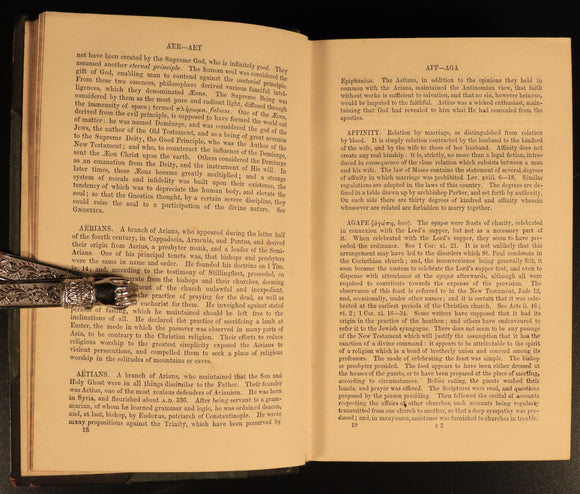 AER—AET
not have been created by the Supreme God, who is infinitely good. They
assumed another eternal principle. The human soul was considered the
gift of God, enabling man to contend against the material principle.
From these two essences, philosophers derived various fanciful intel-
ligences, which they denominated Æons. The Supreme Being was
considered by them as the most pure and radiant light, diffused through
the immensity of space; termed πλήρωμα, fulness. One of the Æons,
derived from the evil principle, is supposed to have formed the world out
of matter: he was named Demiurge, and was considered the god of the
Jews, the author of the Old Testament, and as a being of great aversion
to the Supreme Deity, the Good Principle, who was the Author of the
New Testament; and who, to counteract the influence of the Demiurge,
sent the Æon Christ upon the earth. Others considered the Demiurge
as an emanation from the Deity, and the instrument of His will. In
later times, these Æons became greatly multiplied; and a strange
system of morals and infidelity was built upon their existence, the
tendency of which was to depreciate the human body, and elevate the
soul; so that the Gnostics thought, by a certain severe discipline, they
could raise the soul to a participation of the divine nature. See
GNOSTICS.
AËRIANS. A branch of Arians, who appeared during the latter half
of the fourth century, in Cappadocia, Armenia, and Pontus, and derived
their origin from Aerius, a presbyter monk, and a leader of the Semi-
Arians. One of his principal tenets was, that bishops and presbyters
were the same in name and order. He founded his doctrine on 1 Tim.
14; and, according to the testimony of Stillingfleet, proceeded, on
separate from the bishops and their churches, deeming
ment of the church unlawful and incompetent.
the practice of praying for the dead, as well as
eucharist for them. He inveighed against stated
periods of fasting, which he maintained should be left free to the
inclinations of all. He declared for no sacrifice of a land at
Easter, the mode in which the passover was observed in many parts of
Asia, to be contrary to the Christian religion. Their efforts to reduce
religious worship to the greatest simplicity exposed the Arians to
violent persecutions, and compelled them to seek a place of religious
worship in the solitudes of mountains or caves.
AËTIANS. A branch of Arians, who maintained that the Son and
Holy Ghost were in all things dissimilar to the Father. Their founder
was Aetius, one of the most zealous defenders of Arianism. He was born
in Syria, and flourished about A.D. 336. After being servant to a gram-
marian, of whom he learned grammar and logic, he was ordained deacon,
and, at last, bishop, by Eudoxus, patriarch of Constantinople. He wrote
many propositions against the Trinity, which have been preserved by
18
AFF—AGA
Epiphanius. The Aetians, in addition to the opinions they held in
common with the Arians, maintained the Antinomian view, that faith
without works is sufficient to salvation, and that no sin, however heinous,
would be imputed to the faithful. Aetius was a wicked enthusiast, main-
taining that God had revealed to him what He had concealed from the
apostles.
AFFINITY. Relation by marriage, as distinguished from relation
by blood. It is simply relation contracted by the husband to the kindred
of the wife, and by the wife to those of her husband. Affinity does not
create any real kinship: it is, strictly, no more than a legal fiction, intro-
duced in consequence of the close relation which subsists between a man
and his wife. The law of Moses contains the statement of several degrees
of affinity in which marriage was prohibited. Lev. xviii. 6—18. Similar
regulations are adopted in the laws of this country. The degrees are de-
fined in a table drawn up by archbishop Parker, and set forth by authority.
On each side there are thirty degrees of kindred and affinity wherein
whosoever are related are forbidden to marry together.
AGAPE [ἀγάπη, love]. The agapæ were feasts of charity, celebrated
in connexion with the Lord's supper, but not as a necessary part of
it. When celebrated with the Lord's supper, they seem to have pre-
ceded the ordinance. See 1 Cor. xi. 21. It is not unlikely that this
arrangement may have led to the disorders which St. Paul condemns in
the Corinthian church; and, the inconvenience being generally felt, it
soon became the custom to celebrate the Lord's supper first, and even to
dispense with attendance at the agapæ afterwards, although all were
required to contribute towards the expense of the provision. The
observance of this feast is referred to in the New Testament, Jude 12,
and, occasionally, under other names; and it is certain that it was cele-
brated at the earliest period of the Christian church. See Acts ii. 46;
vi. 2; 1 Cor. xi. 16—34. Some writers have supposed that it had its
origin in the practice of the heathen; and others have endeavoured to
refer it to the Jewish synagogue. There does not seem to be any passage
of the New Testament which will justify the assumption that it has the
sanction of a divine command: it appears to be attributable to the spirit
of a religion which is a bond of brotherly union and concord among its
professors. The mode of celebrating the feast was simple. The bishop
or presbyter presided. The food appears to have been either dressed at
the houses of the guests, or to have been prepared at the place of meeting,
according to circumstances. Before eating, the guests washed their
hands, and prayer was offered. The Scriptures were read, and questions
proposed by the person presiding. Then followed the recital of accounts
respecting the affairs of other churches, such accounts being regularly
transmitted from one church to another, so that a deep sympathy was pro-
duced; and, in many cases, assistance was furnished to churches in trouble.
19 c 2